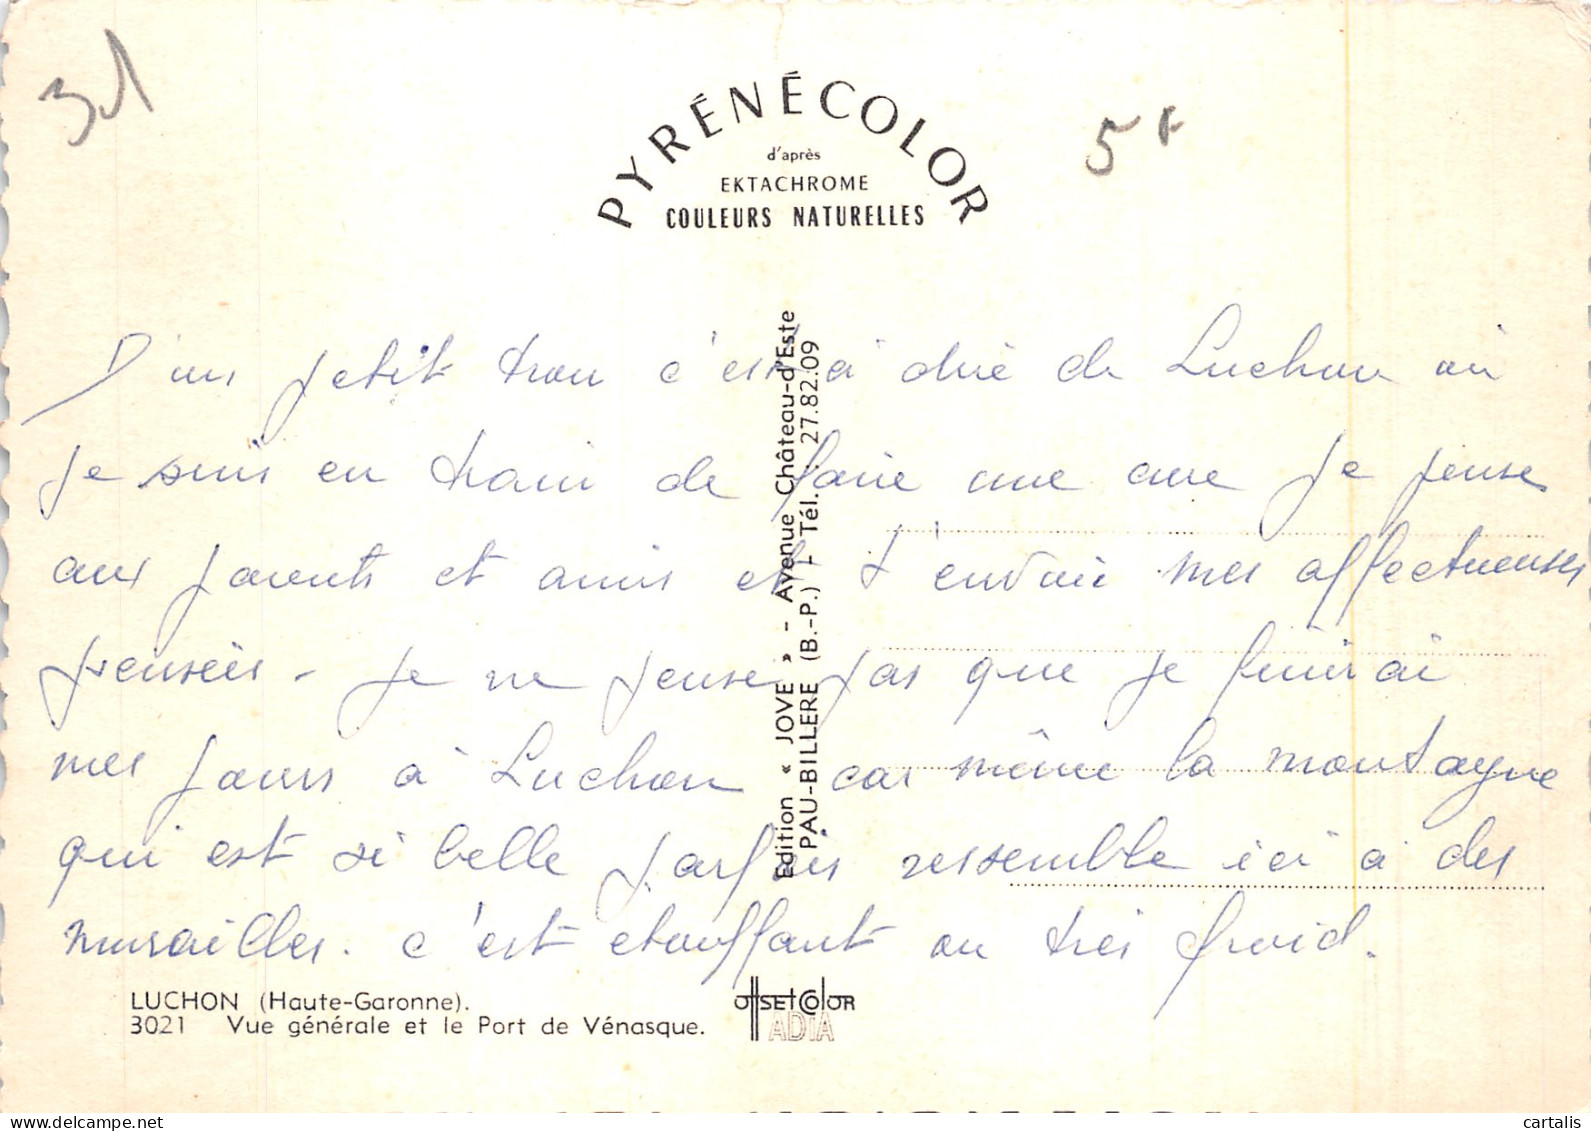 31
5F
PYRÉNÉCOLOR
d'après
EKTACHROME
COULEURS NATURELLES
D'un petit trou c'est à dire de Luchon où
je suis en train de faire une cure je pense
aux parents et amis et t'envoie mes affectueuses
pensées - je ne pense pas que je finirai
mes jours à Luchon car même la montagne
qui est si belle parfois ressemble ici à des
murailles. c'est etouffant ou très froid.
Edition « JOVE » - Avenue Château-d'Este
PAU-BILLERE (B.-P.) - Tél. : 27.82.09
LUCHON (Haute-Garonne).
3021 Vue générale et le Port de Vénasque.
offset color
ADIA
www.delcampe.net
cartalis